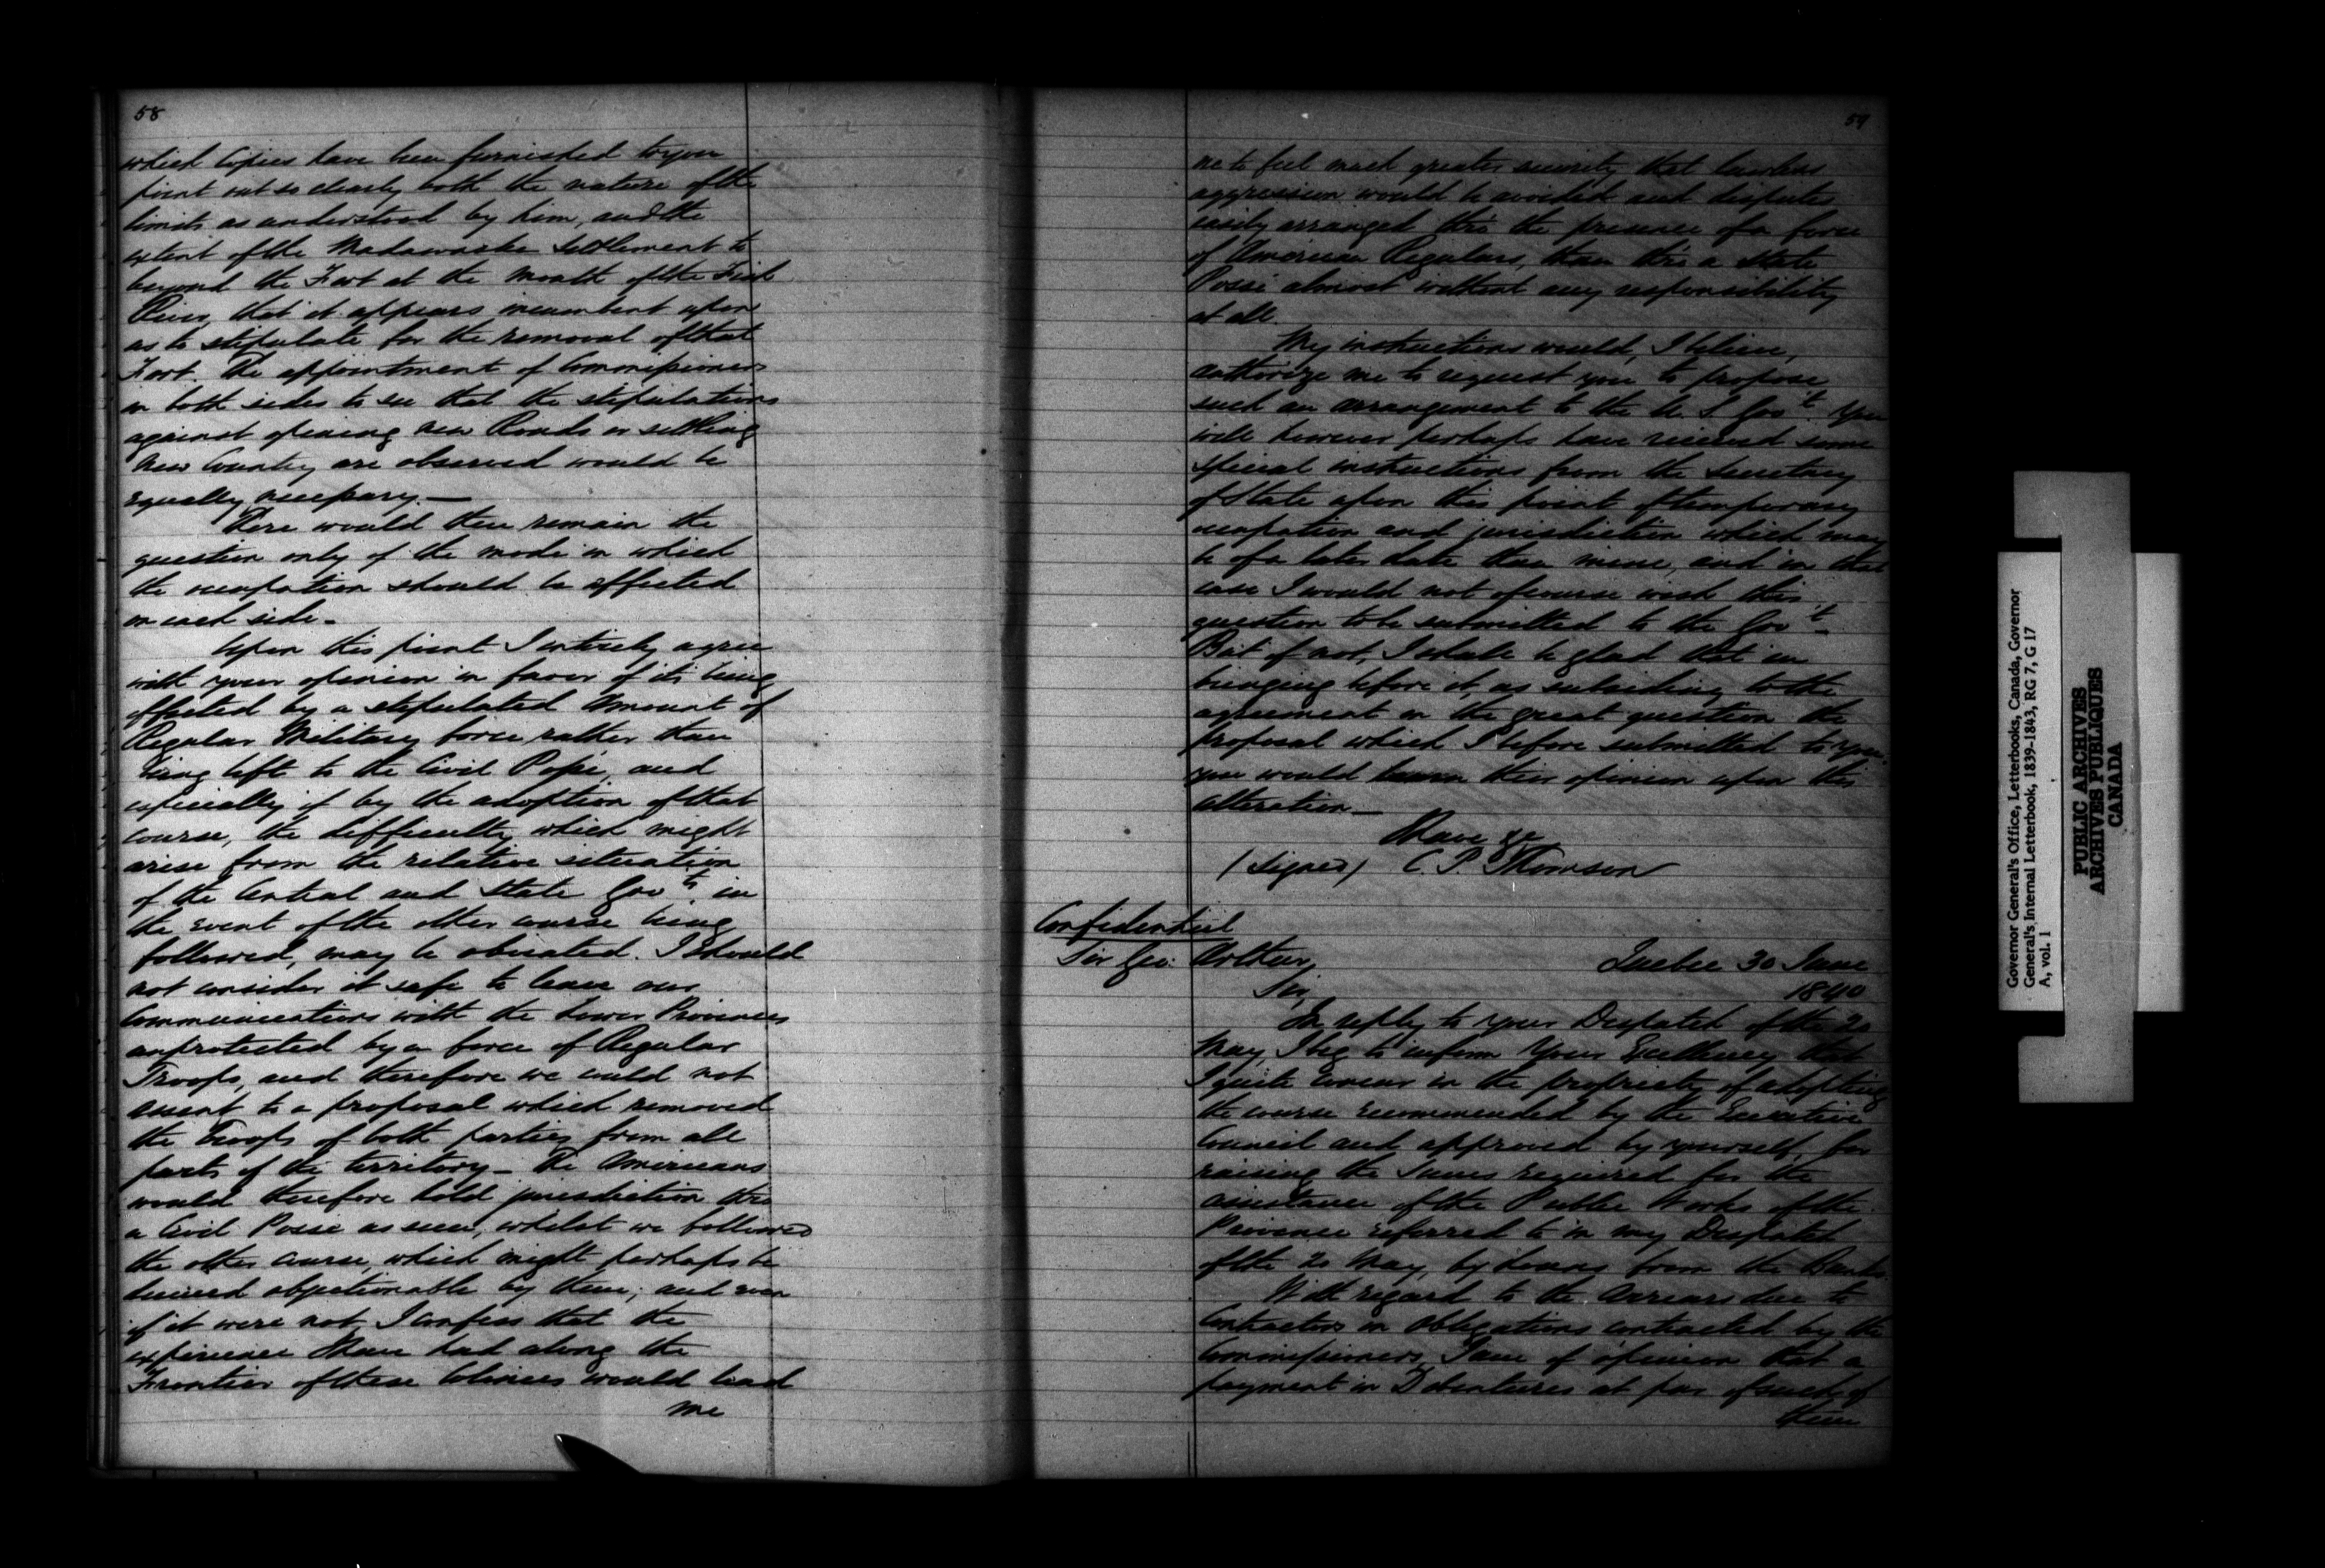 58
which Copies have been furnished to you
point out so clearly both the nature of the
limits as understood by him, and the
extent of the Madawaska Settlement to
beyond the Fort at the mouth of the Fish
River, that it appears incumbent upon
us to stipulate for the removal of that
Fort. The appointment of Commissioners
on both sides to see that the stipulations
against opening new Roads or settling
new Country are observed would be
equally necessary.—
There would then remain the
question only of the mode in which
the occupation should be effected
on each side.
Upon this point I entirely agree
with your opinion in favor of its being
effected by a stipulated amount of
Regular Military force rather than
being left to the Civil Posse, and
especially if by the adoption of that
course, the difficulty which might
arise from the relative situation
of the Central and State Govts in
the event of the other course being
followed, may be obviated. I should
not consider it safe to leave our
Communications with the Lower Provinces
unprotected by a force of Regular
Troops, and therefore we could not
assent to a proposal which removed
the Troops of both parties from all
parts of the territory— The Americans
would therefore hold jurisdiction thro
a Civil Posse as now, whilst we followed
the other course, which might perhaps be
deemed objectionable by them; and even
if it were not, I confess that the
experience I have had along the
Frontier of these Colonies would lead
me
59
me to feel much greater security that lawless
aggression would be avoided and disputes
easily arranged thro' the presence of a force
of American Regulars, than thro a State
Posse almost without any responsibility
at all.
My instructions would, I believe,
authorize me to request you to propose
such an arrangement to the U. S. Gov't. You
will however perhaps have received some
special instructions from the Secretary
of State upon this point of temporary
occupation and jurisdiction which may
be of a later date than mine, and in that
case I would not of course wish this
question to be submitted to the Gov't.
But if not, I shall be glad that in
bringing before it, as subsidiary to the
agreement on the great question the
proposal which I before submitted to you,
you would learn their opinion upon this
alteration.—
I have &c
(signed) C. P. Thomson
Confidential
Sir Geo: Arthur,
Quebec 30 June
1840
Sir,
In reply to your Despatch of the 20
May, I beg to inform Your Excellency that
I quite concur in the propriety of adopting
the course recommended by the Executive
Council and approved by yourself, for
raising the Sums required for the
assistance of the Public Works of the
Province referred to in my Despatch
of the 20 May, by Loans from the Banks.
With regard to the Arrears due to
Contractors on Obligations contracted by the
Commissioners, I am of opinion that a
payment in Debentures at par of such of
them
Governor General's Office, Letterbooks, Canada, Governor
General's Internal Letterbook, 1839-1843, RG 7, G 17
A, vol. 1
PUBLIC ARCHIVES
ARCHIVES PUBLIQUES
CANADA